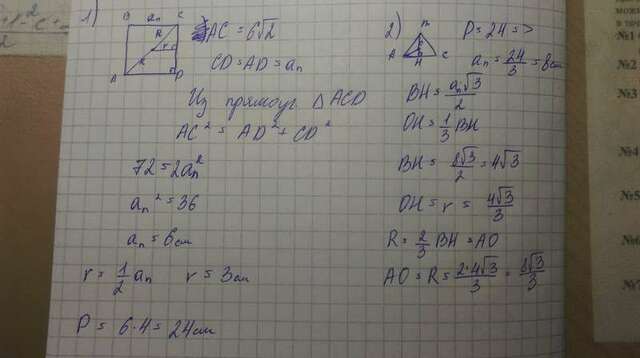 1)
B aₙ C
R
r
R
A D
AC = 6√2
CD = AD = aₙ
Из прямоуг. △ACD
AC² = AD² + CD²
72 = 2aₙ²
aₙ² = 36
aₙ = 6см
r = 1/2 aₙ r = 3см
P = 6·4 = 24см
2)
A H C
P = 24 =>
aₙ = 24/3 = 8см
BH = aₙ√3/2
OH = 1/3 BH
BH = 8√3/2 = 4√3
OH = r = 4√3/3
R = 2/3 BH = AO
AO = R = 2·4√3/3 = 8√3/3
№1
№2
№3
№4
№5
№6
№7